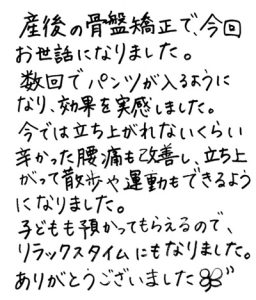 産後の骨盤矯正で、今回
お世話になりました。
数回でパンツが入るように
なり、効果を実感しました。
今では立ち上がれないくらい
辛かった腰痛も改善し、立ち上
がって散歩や運動もできるよう
になりました。
子どもも預かってもらえるので、
リラックスタイムにもなりました。
ありがとうございました